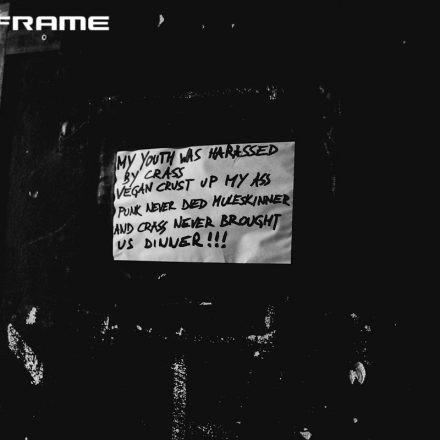 FRAME
MY YOUTH WAS HARASSED
BY CRASS
VEGAN CRUST UP MY ASS
PUNK NEVER DIED MULESKINNER
AND CRASS NEVER BROUGHT
US DINNER!!!